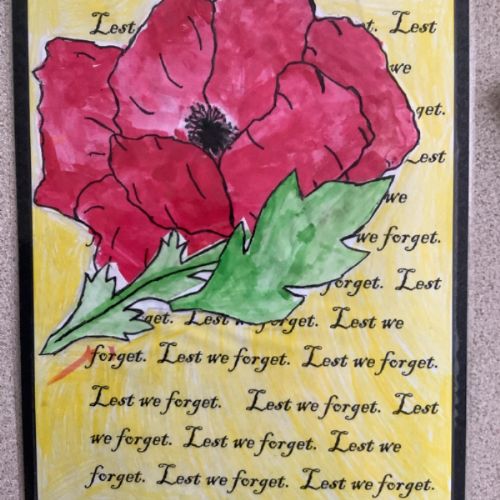 Lest Lest
we
get.
Lest
we
we forget.
forget. Lest
get. Lest we forget. Lest we
forget. Lest we forget. Lest we forget.
Lest we forget. Lest we forget. Lest
we forget. Lest we forget. Lest we
forget. Lest we forget. Lest we forget.